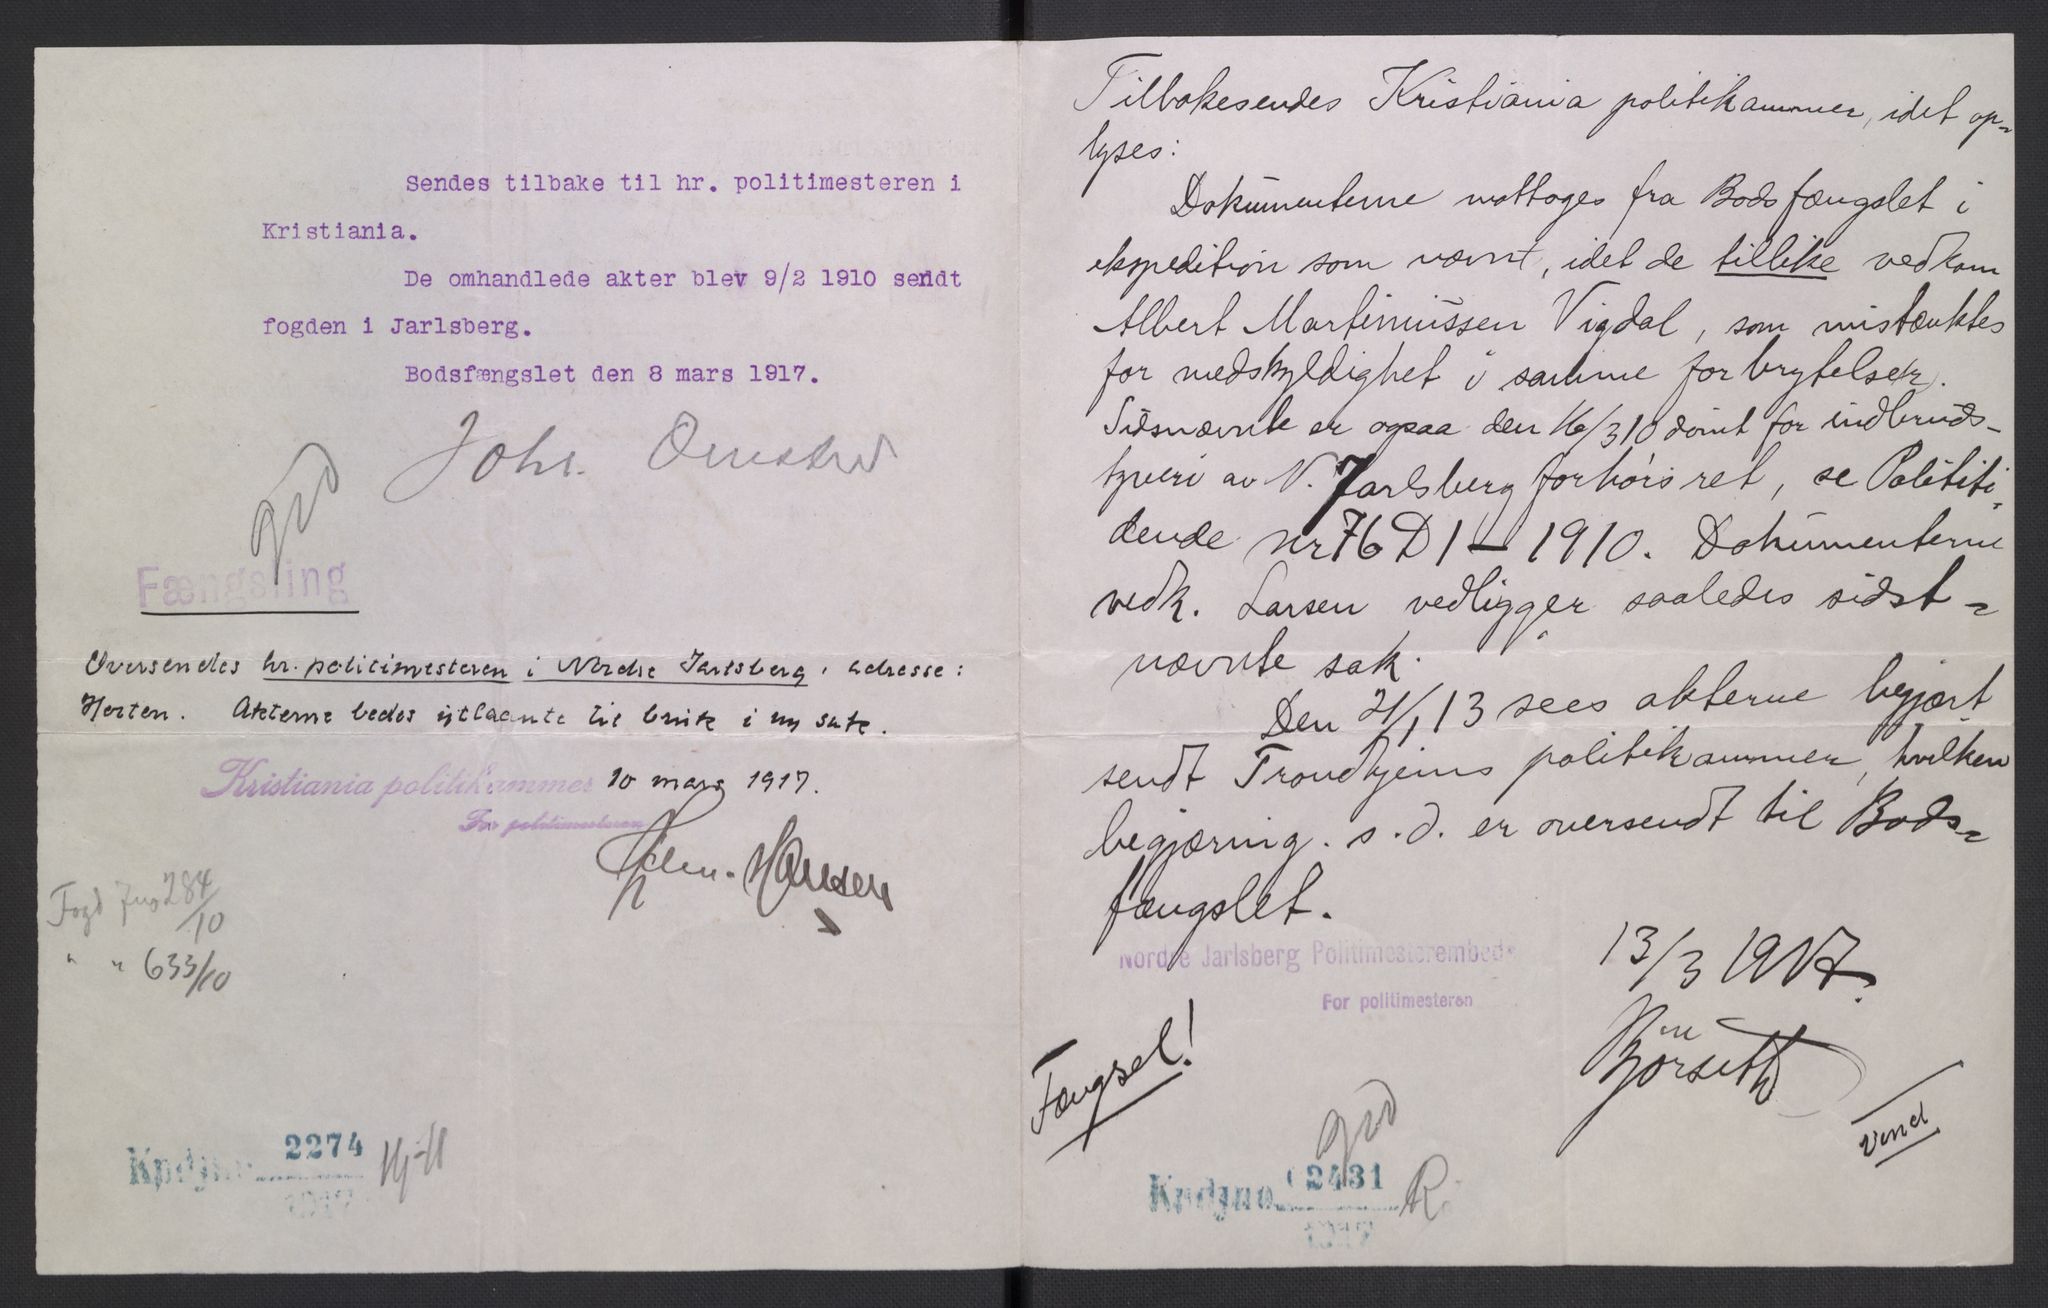 Sendes tilbake til hr. politimesteren i
Kristiania.
De omhandlede akter blev 9/2 1910 sendt
fogden i Jarlsberg.
Bodsfængslet den 8 mars 1917.
Joh.
Fængsling
Oversendes hr. politimesteren i Nordre Jarlsberg, adresse:
Horten. Akterne bedes utlaante til bruk i ny sak.
Kristiania politikammer 10 mars 1917.
For politimesteren
Hansen
Fogd Jno 284/10
" " 633/10
Kpdjno. 2274
1917
Tilbakesendes Kristiania politikammer, idet op-
lyses:
Dokumenterne mottoges fra Bodsfængslet i
ekspedition som nævnt, idet de tillike vedkom
Albert Martiniussen Vigdal, som mistænktes
for medskyldighet i samme forbrytelse(r).
Sidsnævnte er ogsaa den 16/3 10 dømt for indbruds-
tyveri av N. Jarlsberg forhørsret, se Polititi-
dende nr 76 D 1 - 1910. Dokumenterne
vedk. Larsen vedligger saaledes sidst-
nævnte sak.
Den 21/1 13 sees akterne begjært
sendt Trondhjems politikammer, hvilken
begjæring s. d. er oversendt til Bods-
fængslet.
Nordre Jarlsberg Politimesterembede
13/3 1917.
For politimesteren
Børseth
Fængsel!
Vend
Kpdjno. 2431
1917